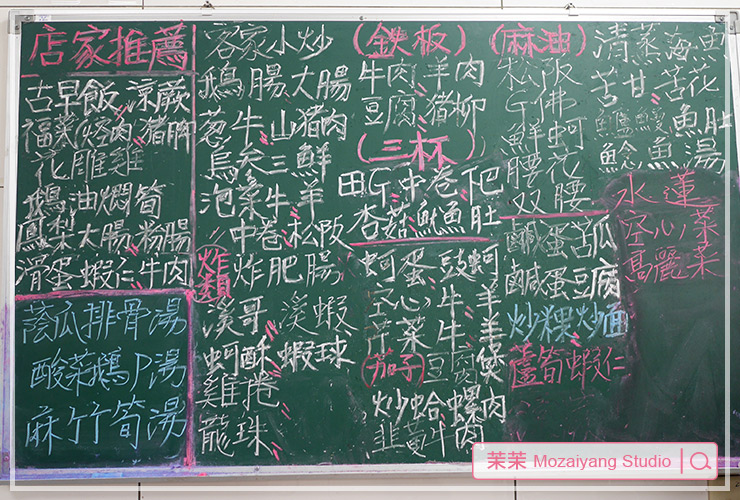 店家推薦
古早飯 涼蕨
福菜 (控肉 豬腳
花雕雞
鵝油燜筍
鳳梨大腸 粉腸
滑蛋蝦仁牛肉
蔭瓜排骨湯
酸菜鵝P湯
麻竹筍湯
客家小炒
鵝腸大腸
蔥牛山豬肉
烏參三鮮
泡菜牛羊
中卷松阪
炸類
炸肥腸
溪哥 溪蝦
蚵酥蝦球
雞捲
龍珠
(鉄板)
牛肉羊肉
豆腐豬柳
(三杯)
田G中卷
杏菇魷魚肚
蚵蛋豉蚵
空心牛羊
芹菜牛羊
(茄子)豆肉
炒蛤螺肉
韭黃牛肉
(麻油)
松阪
G佛
鮮蚵
腰花
双腰
鹹蛋苦瓜
鹹蛋豆腐
炒粿炒面
蘆筍蝦仁
清蒸海魚
苦甘苦花
鱸鰻魚肚
鯰魚湯
水蓮
空心菜
高麗菜
茉茉 Mozaiyang Studio